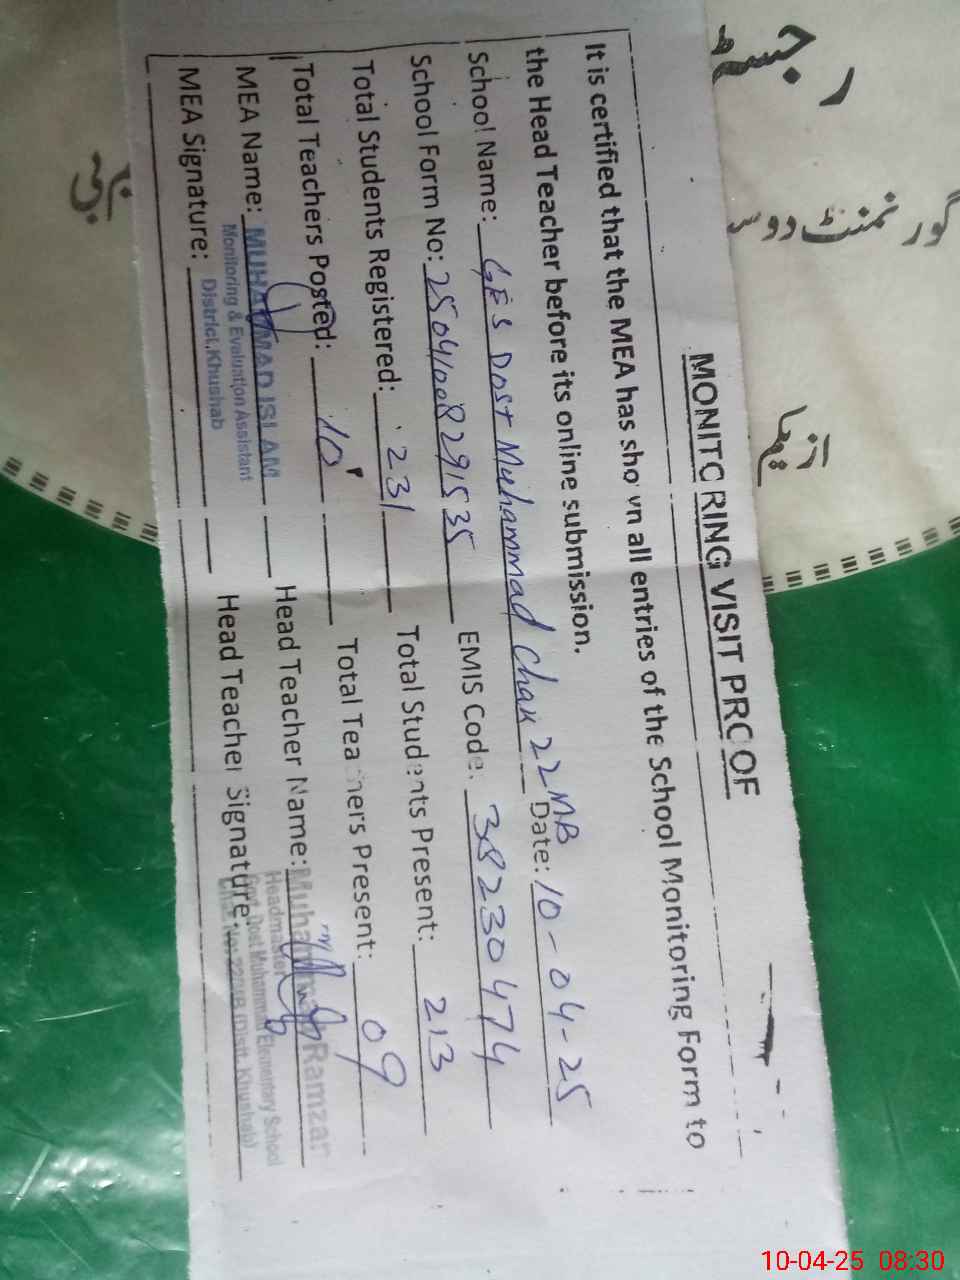 MONITORING VISIT PROOF
It is certified that the MEA has shown all entries of the School Monitoring Form to
the Head Teacher before its online submission.
School Name: GES Dost Muhammad Chak 22MB Date: 10-04-25
School Form No: 25041008291535 EMIS Code: 38230474
Total Students Registered: 231 Total Students Present: 213
Total Teachers Posted: 10 Total Teachers Present: 09
MEA Name: MUHAMMAD ISLAM Head Teacher Name: Muhammad Ramzan
Monitoring & Evaluation Assistant Headmaster
District Khushab Govt. Dost Muhammad Elementary School
MEA Signature: Head Teacher Signature:
Chak No. 22MB (Distt. Khushab)
گورنمنٹ دوست
10-04-25 08:30